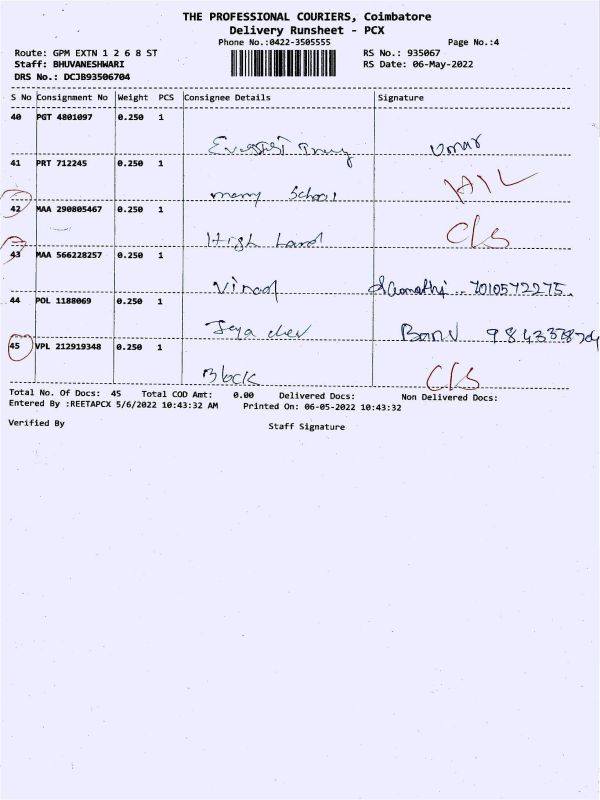 THE PROFESSIONAL COURIERS, Coimbatore
Delivery Runsheet - PCX
Phone No.:0422-3505555 Page No.:4
Route: GPM EXTN 1 2 6 8 ST RS No.: 935067
Staff: BHUVANESHWARI RS Date: 06-May-2022
DRS No.: DCJB93506704
S No Consignment No Weight PCS Consignee Details Signature
40 PGT 4801097 0.250 1
Umar
41 PRT 712245 0.250 1
School
42 MAA 290805467 0.250 1
High Land
43 MAA 566228257 0.250 1
Vinod 7010572275
44 POL 1188069 0.250 1
Jeya dev Banu
45 VPL 212919348 0.250 1
Block
Total No. Of Docs: 45 Total COD Amt: 0.00 Delivered Docs: Non Delivered Docs:
Entered By :REETAPCX 5/6/2022 10:43:32 AM Printed On: 06-05-2022 10:43:32
Verified By Staff Signature